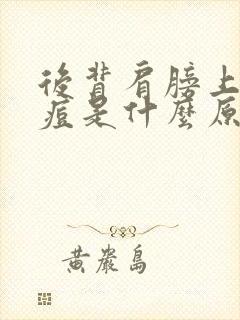 後背肩膀上
痘是什麼原
黃巖島